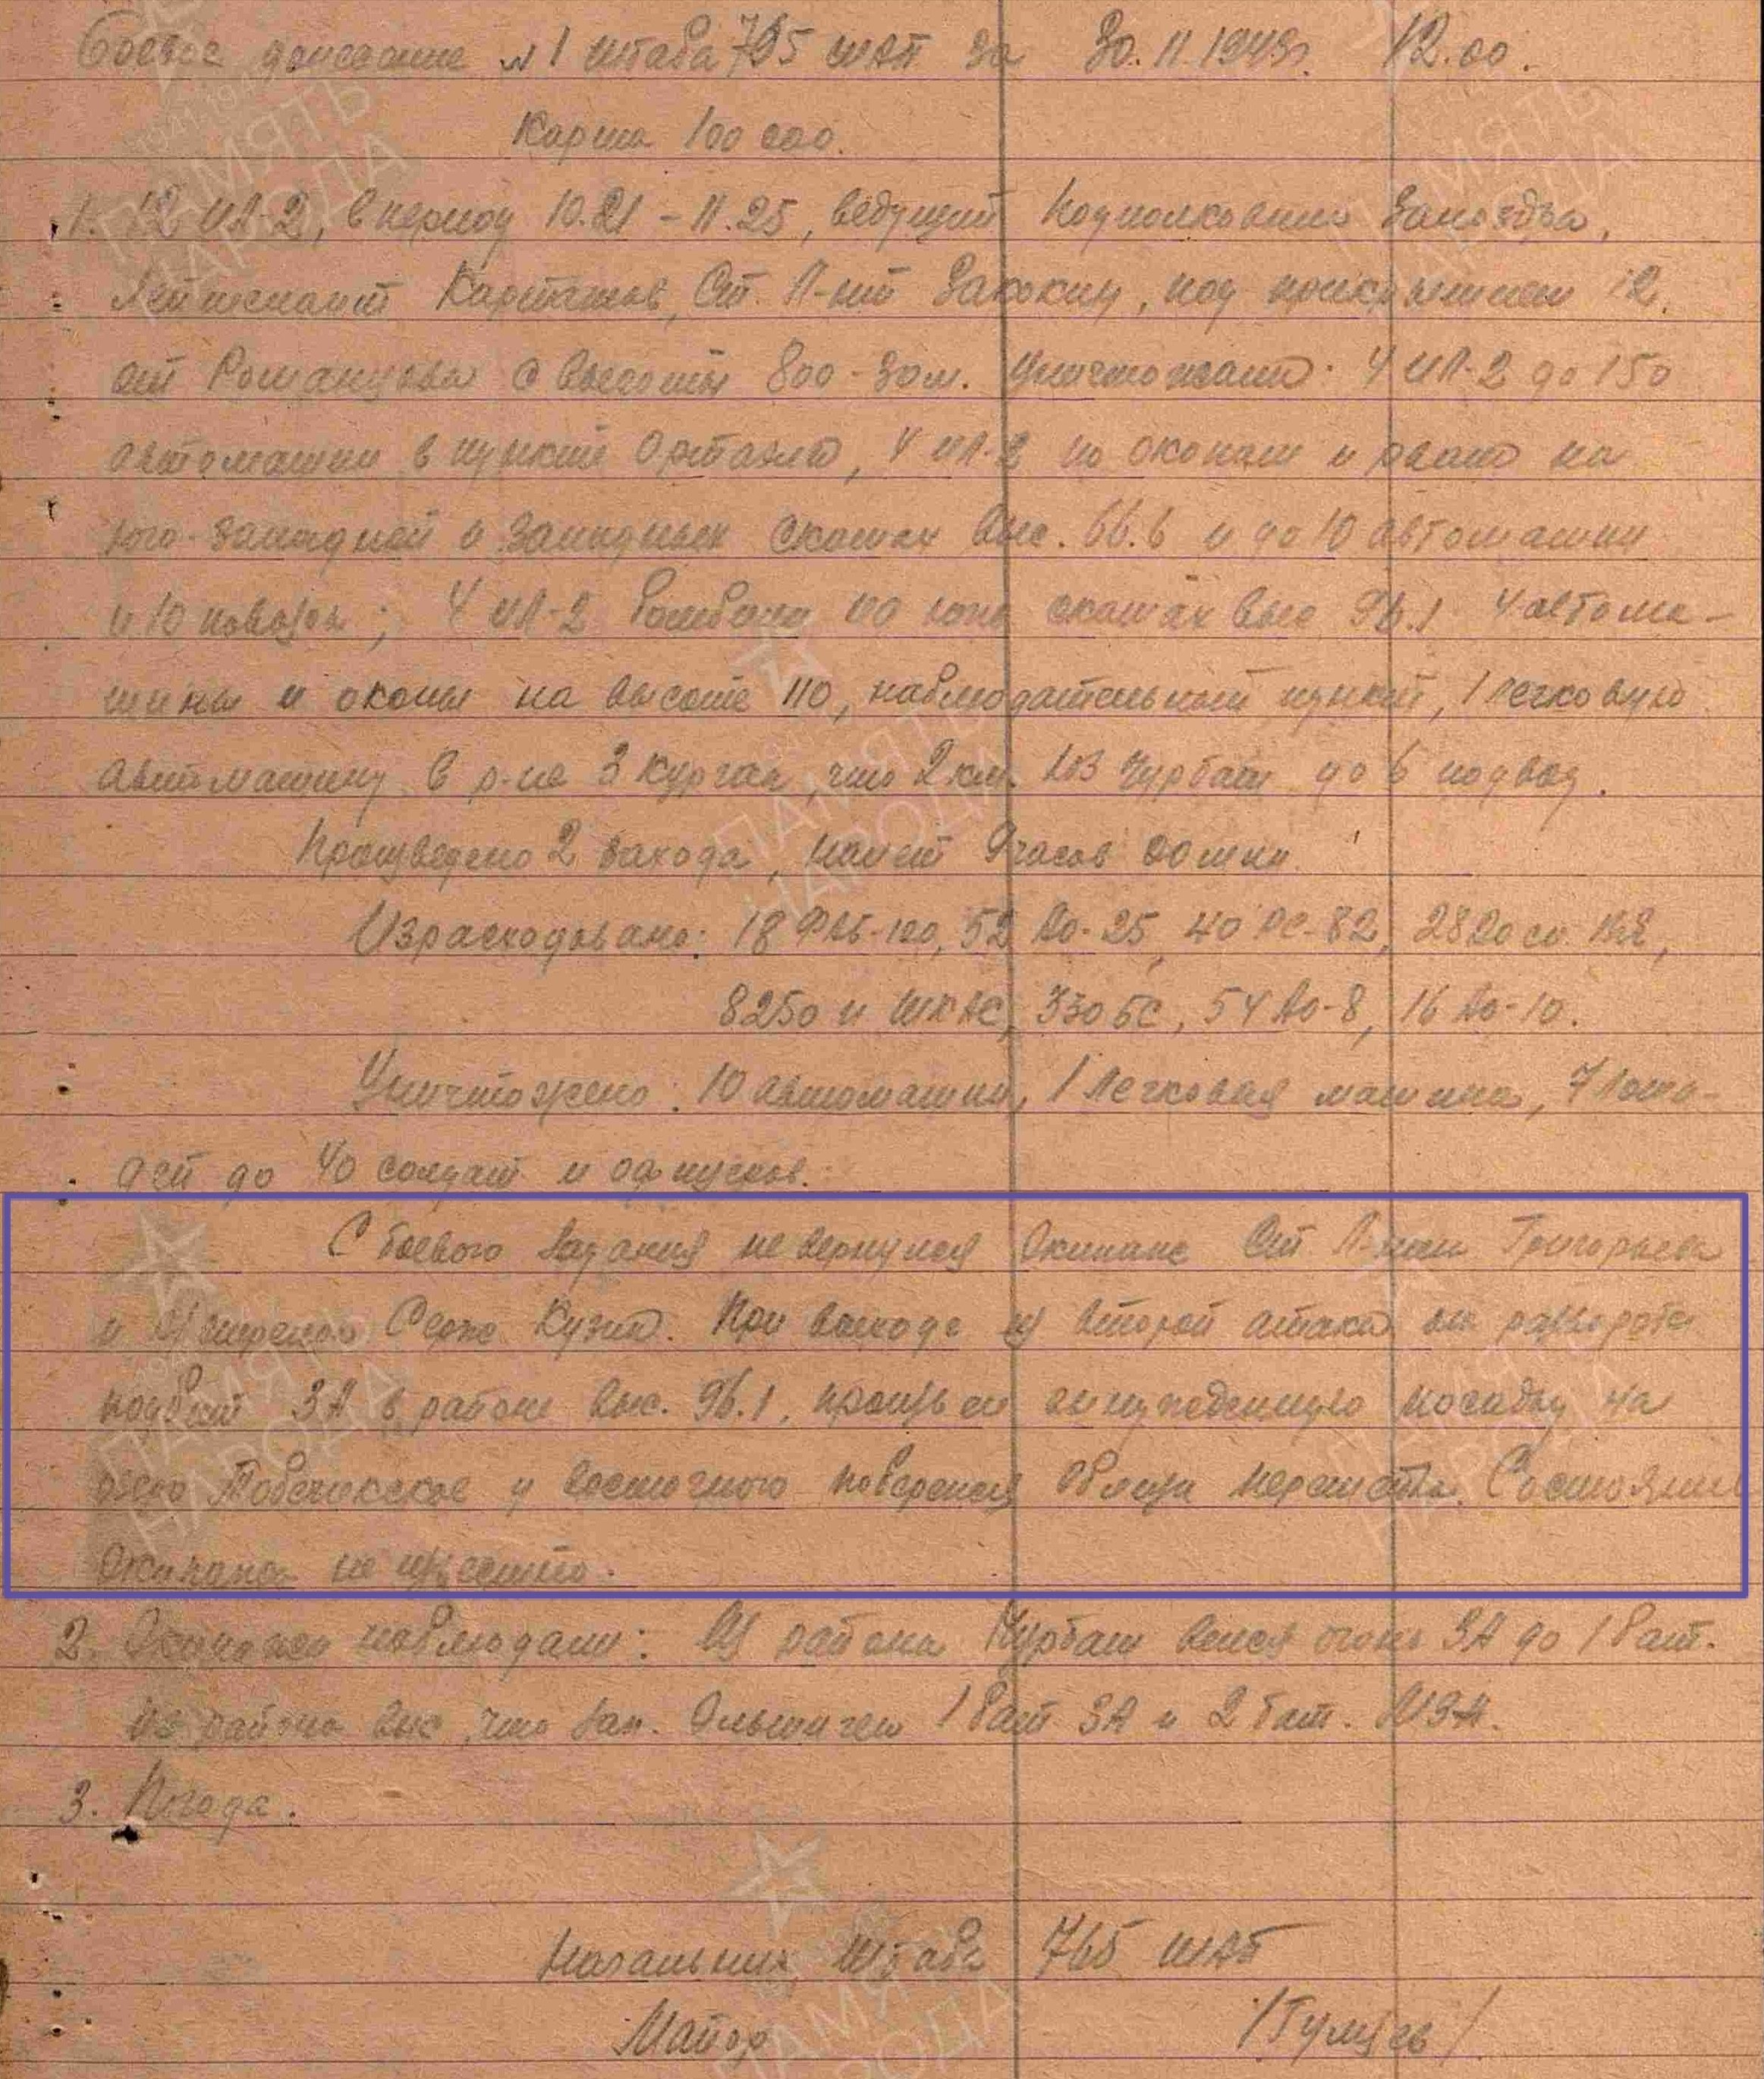 Боевое донесение № 1 штаба 765 шап за 30.11.1943г. 12.00.
Карта 100 000.
1. 12 ИЛ-2, в период 10.21 - 11.25, ведущий подполковник
Лейтенант Карташов, Ст Л-нт Закокин, под прикрытием 12
с высоты 800-30м. Уничтожали: 4 ИЛ-2 до 150
автомашин в пункте Ортаэли, 4 ИЛ-2 по окопам и на
юго-западной и западных скатах выс. 66.6 и до 10 автомашин
и 10 повозок; 4 ИЛ-2 бомбили по южн скатах выс 96.1 4 автома-
шины и окопы на высоте 110, наблюдательный пункт, 1 легковую
автомашину в р-не 3 курган, что 2 км. ЮЗ Чурбаш до 6 подвод.
Произведено 2 захода, налет 9 часов 00 мин.
Израсходовано: 18 ФАБ-100, 52 АО-25, 40 РС-82,
8250 и ШКАС, 330 БС, 54 АО-8, 16 АО-10.
Уничтожено: 10 автомашин, 1 легковая машина, 7 лоша-
дей до 40 солдат и офицеров.
С боевого задания не вернулся экипаж Ст Л-нта Григорьева
и Серж Кузин. При выходе из второй атаки на развороте
подбит ЗА в районе выс. 96.1, произвел вынужденную посадку на
озеро Тобечикское у восточного побережья вблизи перешейка. Состояние
экипажа не известно.
2. Экипажи наблюдали: Из района Чурбаш велся огонь ЗА до 1 бат.
из района выс, что зап. Эльтиген 1 бат ЗА и 2 бат. МЗА.
3. Погода.
Начальник штаба 765 шап
Майор /Гумцев/
ПАМЯТЬ
НАРОДА